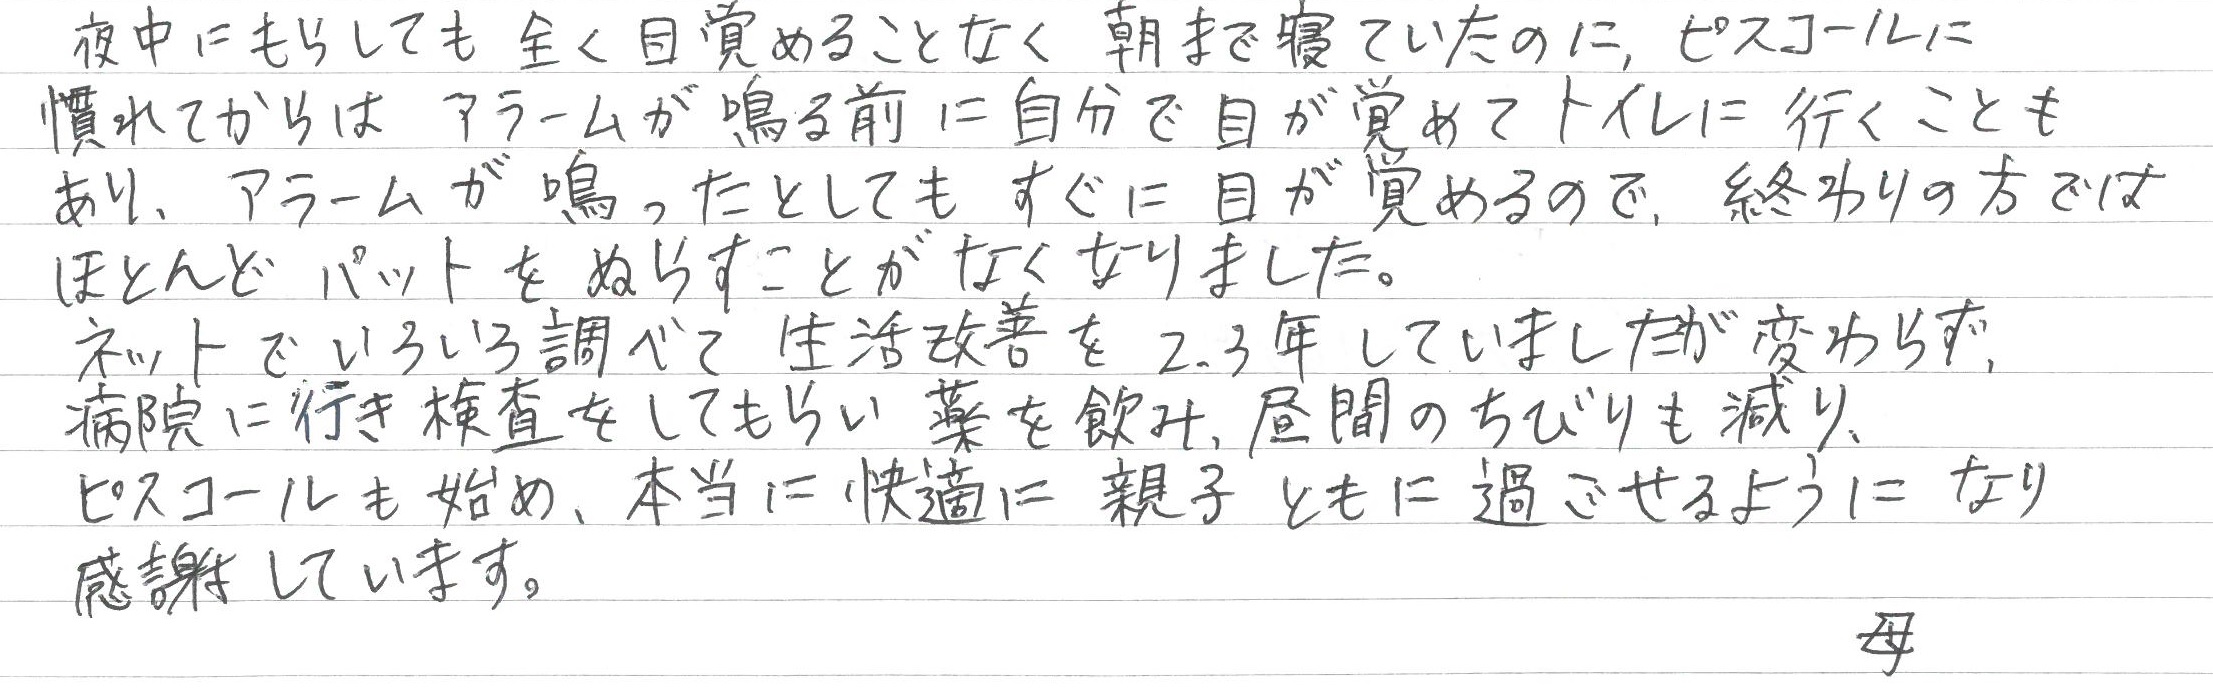 夜中にもらしても全く目覚めることなく朝まで寝ていたのに、ピスコールに
慣れてからは アラームが鳴る前に自分で目が覚めてトイレに行くことも
あり、アラームが鳴ったとしてもすぐに目が覚めるので、終わりの方では
ほとんどパットをぬらすことがなくなりました。
ネットでいろいろ調べて生活改善を2.3年していましたが変わらず、
病院に行き検査をしてもらい薬を飲み、昼間のちびりも減り、
ピスコールも始め、本当に快適に親子ともに過ごせるようになり
感謝しています。
母